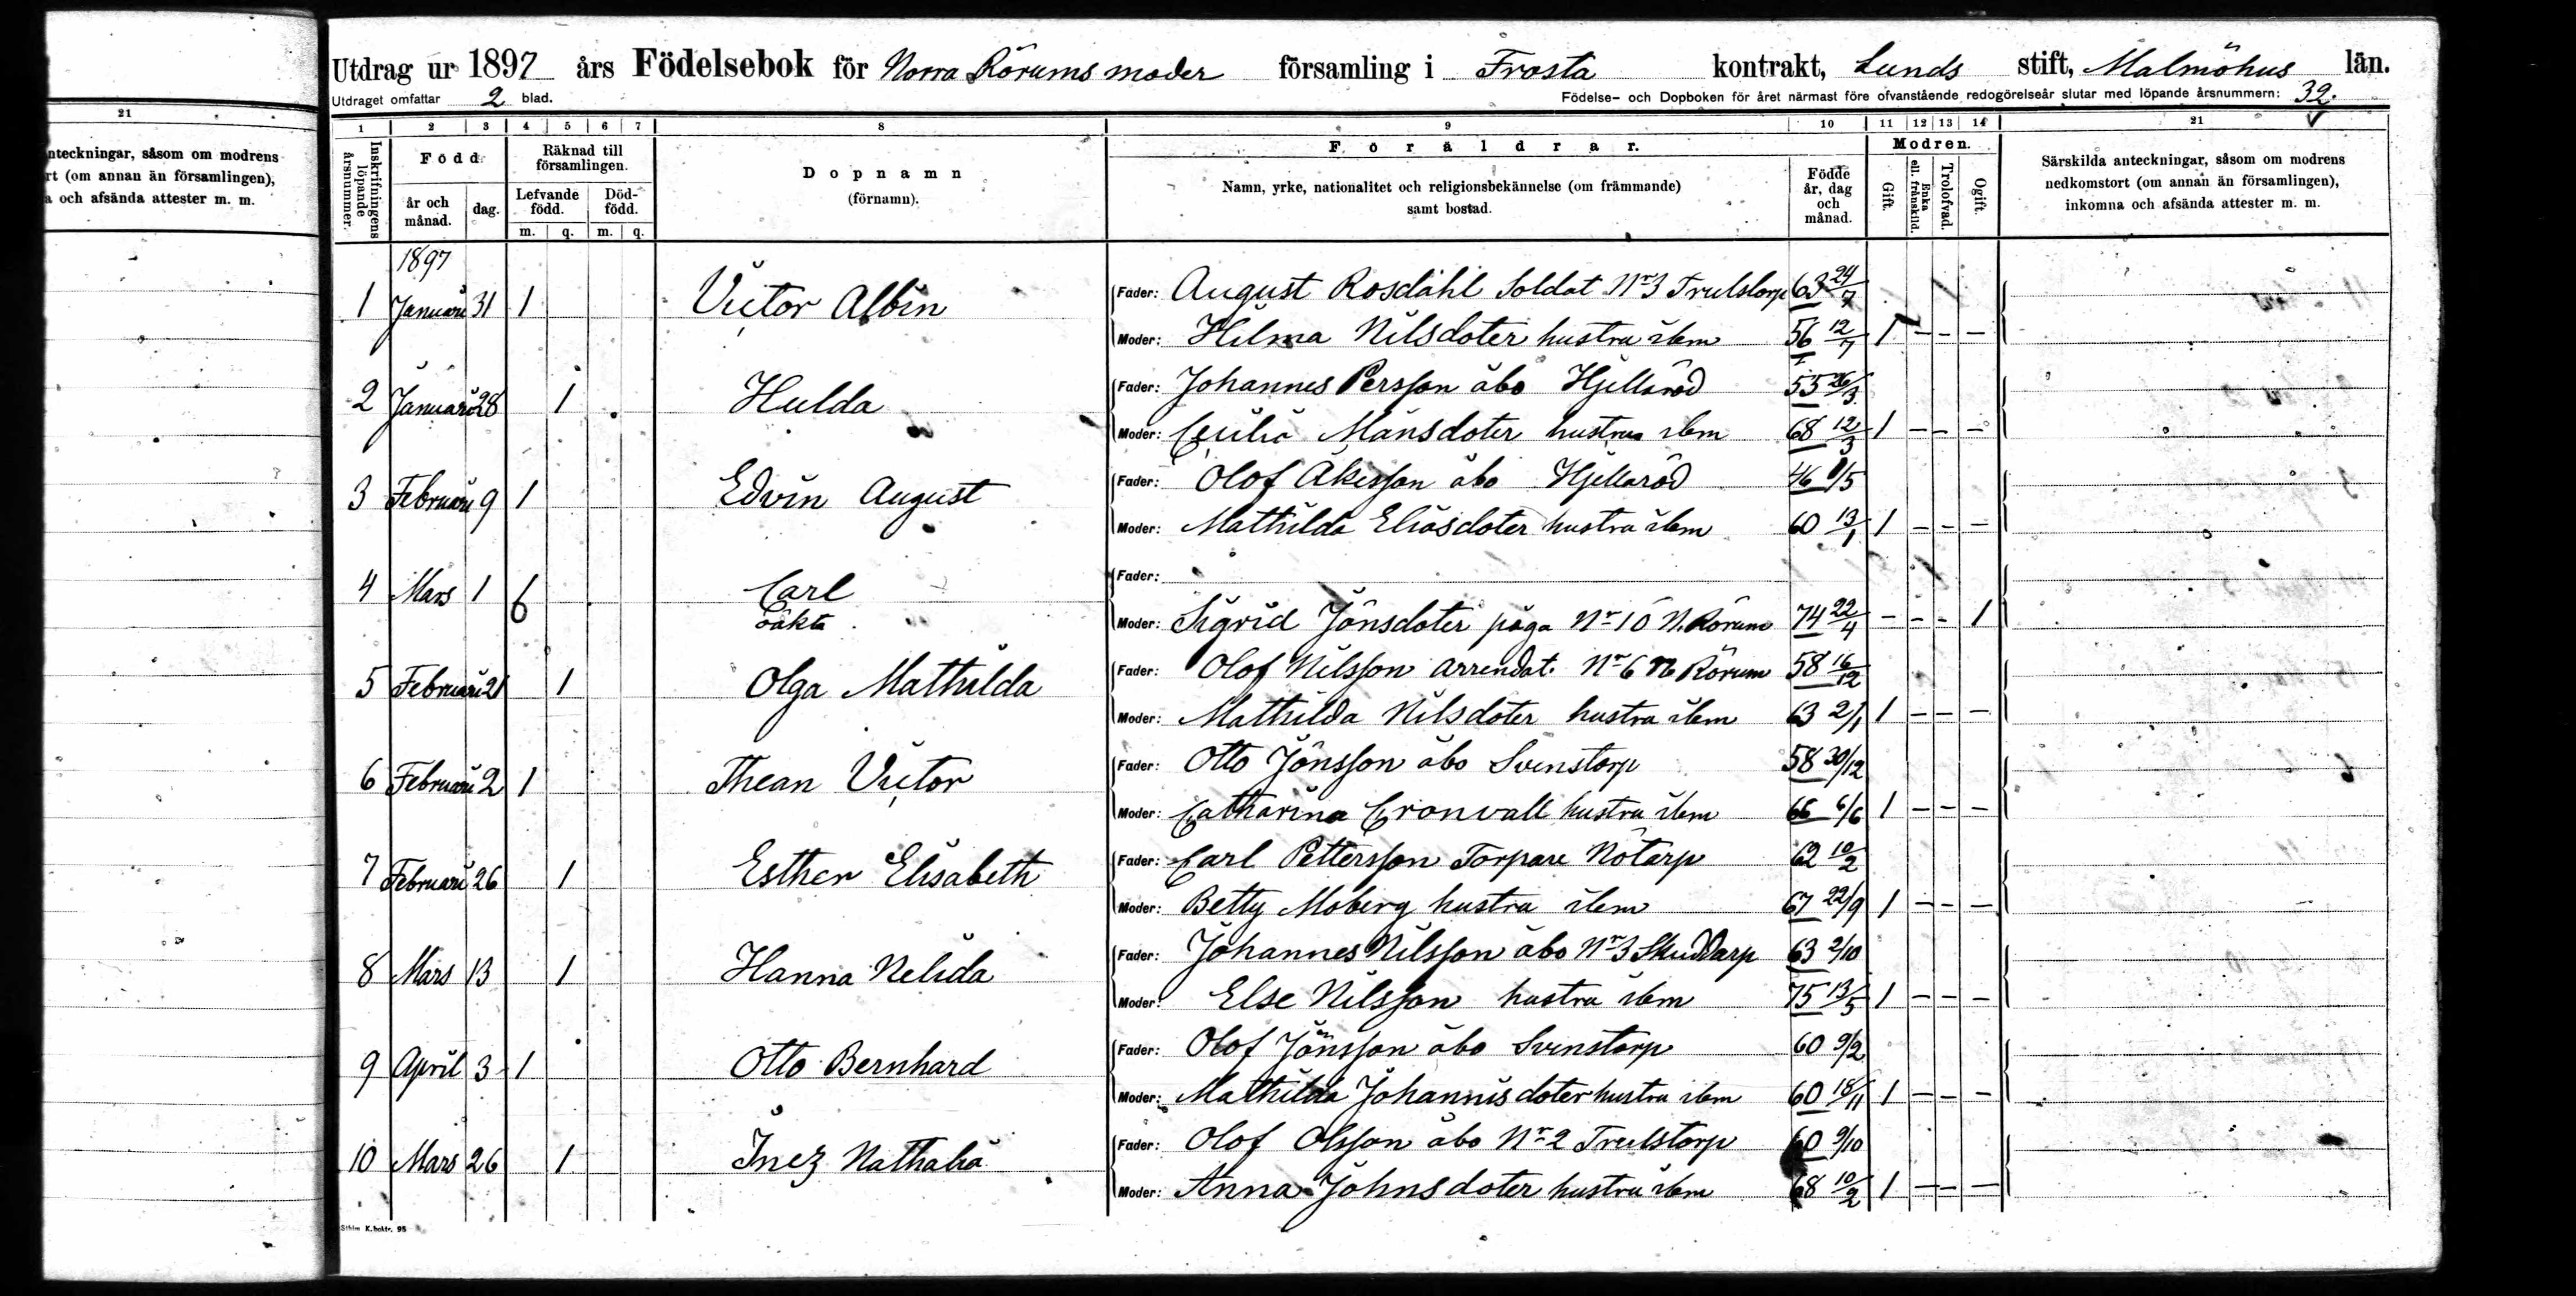 Utdrag ur 1897 års Födelsebok för Norra Rörums moder församling i Frosta kontrakt, Lunds stift, Malmöhus län.
Utdraget omfattar 2 blad. Födelse- och Dopboken för året närmast före ofvanstående redogörelseår slutar med löpande årsnummern: 32.
21
nteckningar, såsom om modrens
rt (om annan än församlingen),
a och afsända attester m. m.
1 2 3 4 5 6 7 8 9 10 11 12 13 14 21
Inskrifningens löpande årsnummer.
Född
år och månad.
dag.
Räknad till församlingen.
Lefvande född.
Död-född.
m. q. m. q.
Dopnamn
(förnamn).
Föräldrar.
Namn, yrke, nationalitet och religionsbekännelse (om främmande)
samt bostad.
Födde år, dag och månad.
Modren.
Gift.
Enka ell. frånskild.
Trolofvad.
Ogift.
Särskilda anteckningar, såsom om modrens
nedkomstort (om annan än församlingen),
inkomna och afsända attester m. m.
1897
1 Januari 31 1 Victor Albin Fader: August Rosdahl Soldat Nr 3 Trulstorp 63 24/7
Moder: Hilma Nilsdoter hustru ibm 56 12/7 1 – – –
2 Januari 28 1 Hulda Fader: Johannes Persson åbo Hjellaröd 55 26/3
Moder: Cecilia Månsdoter hustru ibm 68 12/3 1 – – –
3 Februari 9 1 Edvin August Fader: Olof Åkesson åbo Hjellaröd 46 1/5
Moder: Mathilda Eliasdoter hustru ibm 60 13/1 1 – – –
4 Mars 1 Carl Fader:
oäkta Moder: Sigrid Jönsdoter piga Nr 10 N. Rörum 74 22/4 – – – 1
5 Februari 21 1 Olga Mathilda Fader: Olof Nilsson arrendat. Nr 6 N Rörum 58 16/12
Moder: Mathilda Nilsdoter hustru ibm 63 2/1 1 – – –
6 Februari 2 1 Thean Victor Fader: Otto Jönsson åbo Svenstorp 58 30/12
Moder: Catharina Cronvall hustru ibm 66 6/6 1 – – –
7 Februari 26 1 Esther Elisabeth Fader: Carl Pettersson Torpare Nötarp 62 10/2
Moder: Betty Moberg hustru ibm 67 22/9 1 – – –
8 Mars 13 1 Hanna Nelida Fader: Johannes Nilsson åbo Nr 3 Skuddarp 63 2/10
Moder: Else Nilsson hustru ibm 75 13/5 1 – – –
9 April 3 1 Otto Bernhard Fader: Olof Jönsson åbo Svenstorp 60 9/2
Moder: Mathilda Johannisdoter hustru ibm 60 18/11 1 – – –
10 Mars 26 1 Inez Nathalia Fader: Olof Olsson åbo Nr 2 Trulstorp 60 9/10
Moder: Anna Johnsdoter hustru ibm 68 10/2 1 – – –
Sthlm K. boktr. 95